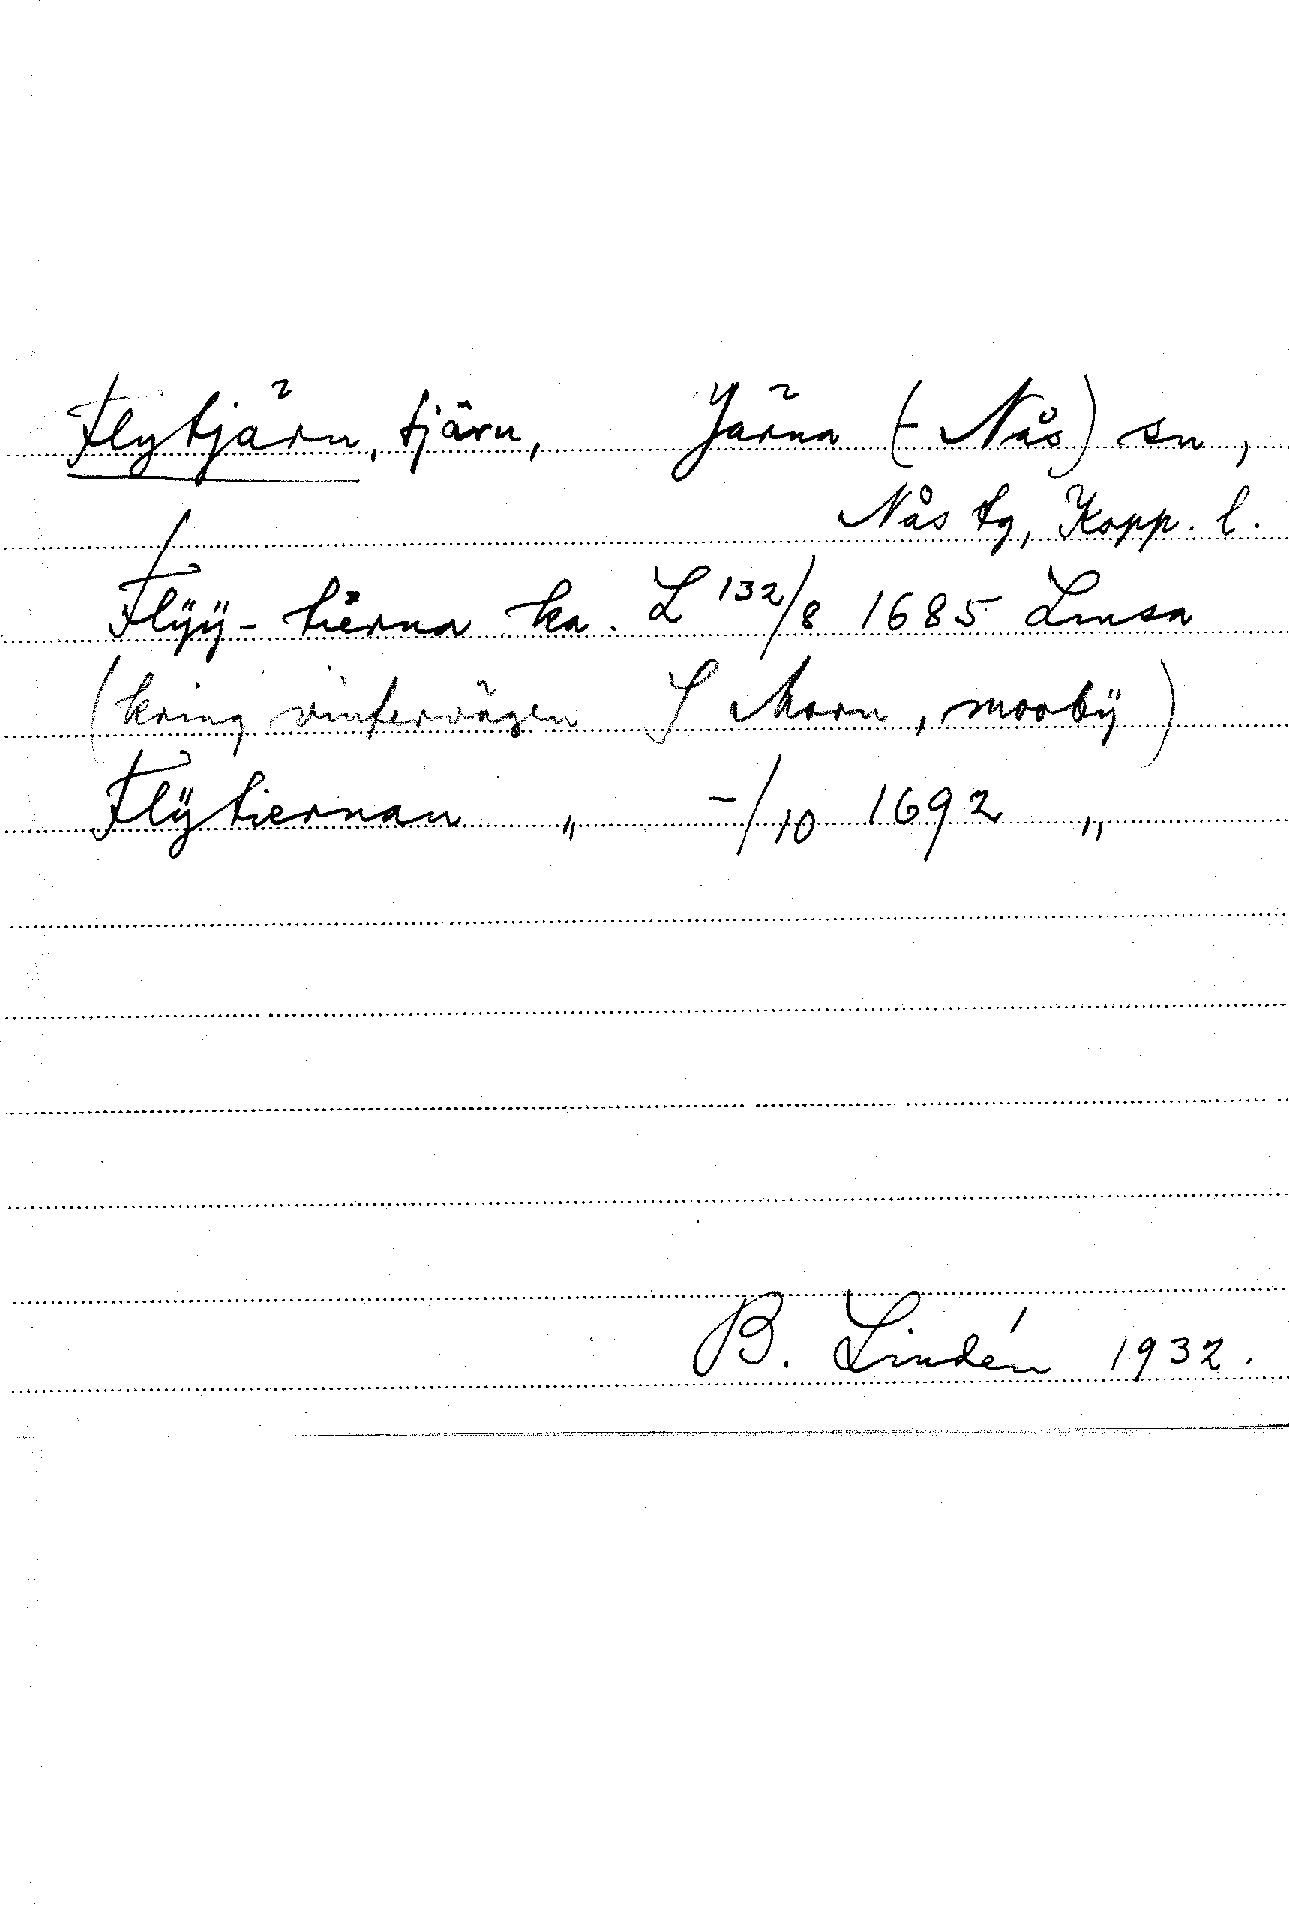 Flytjärn, tjärn, Järna (-Nås) sn,
Nås tg, Kopp. l.
Flÿÿ-tierna ka. L 132/8 1685 Lmsa
(kring vintervägen S Morn, moobÿ)
Flÿtiernan " -/10 1692 "
B. Lindén 1932.